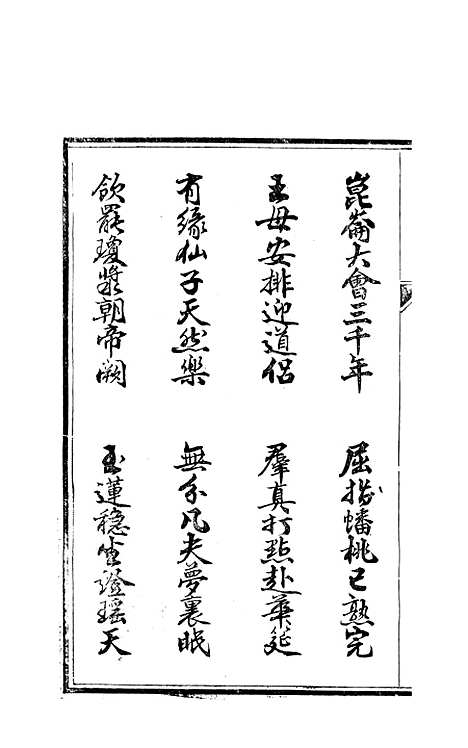 崑崙大會三千年　屈指蟠桃已熟完
王母安排迎道侶　羣真打點赴華筵
有緣仙子天然樂　無分凡夫夢裏眠
飲罷瓊漿朝帝闕　玉蓮穩坐證瑤天